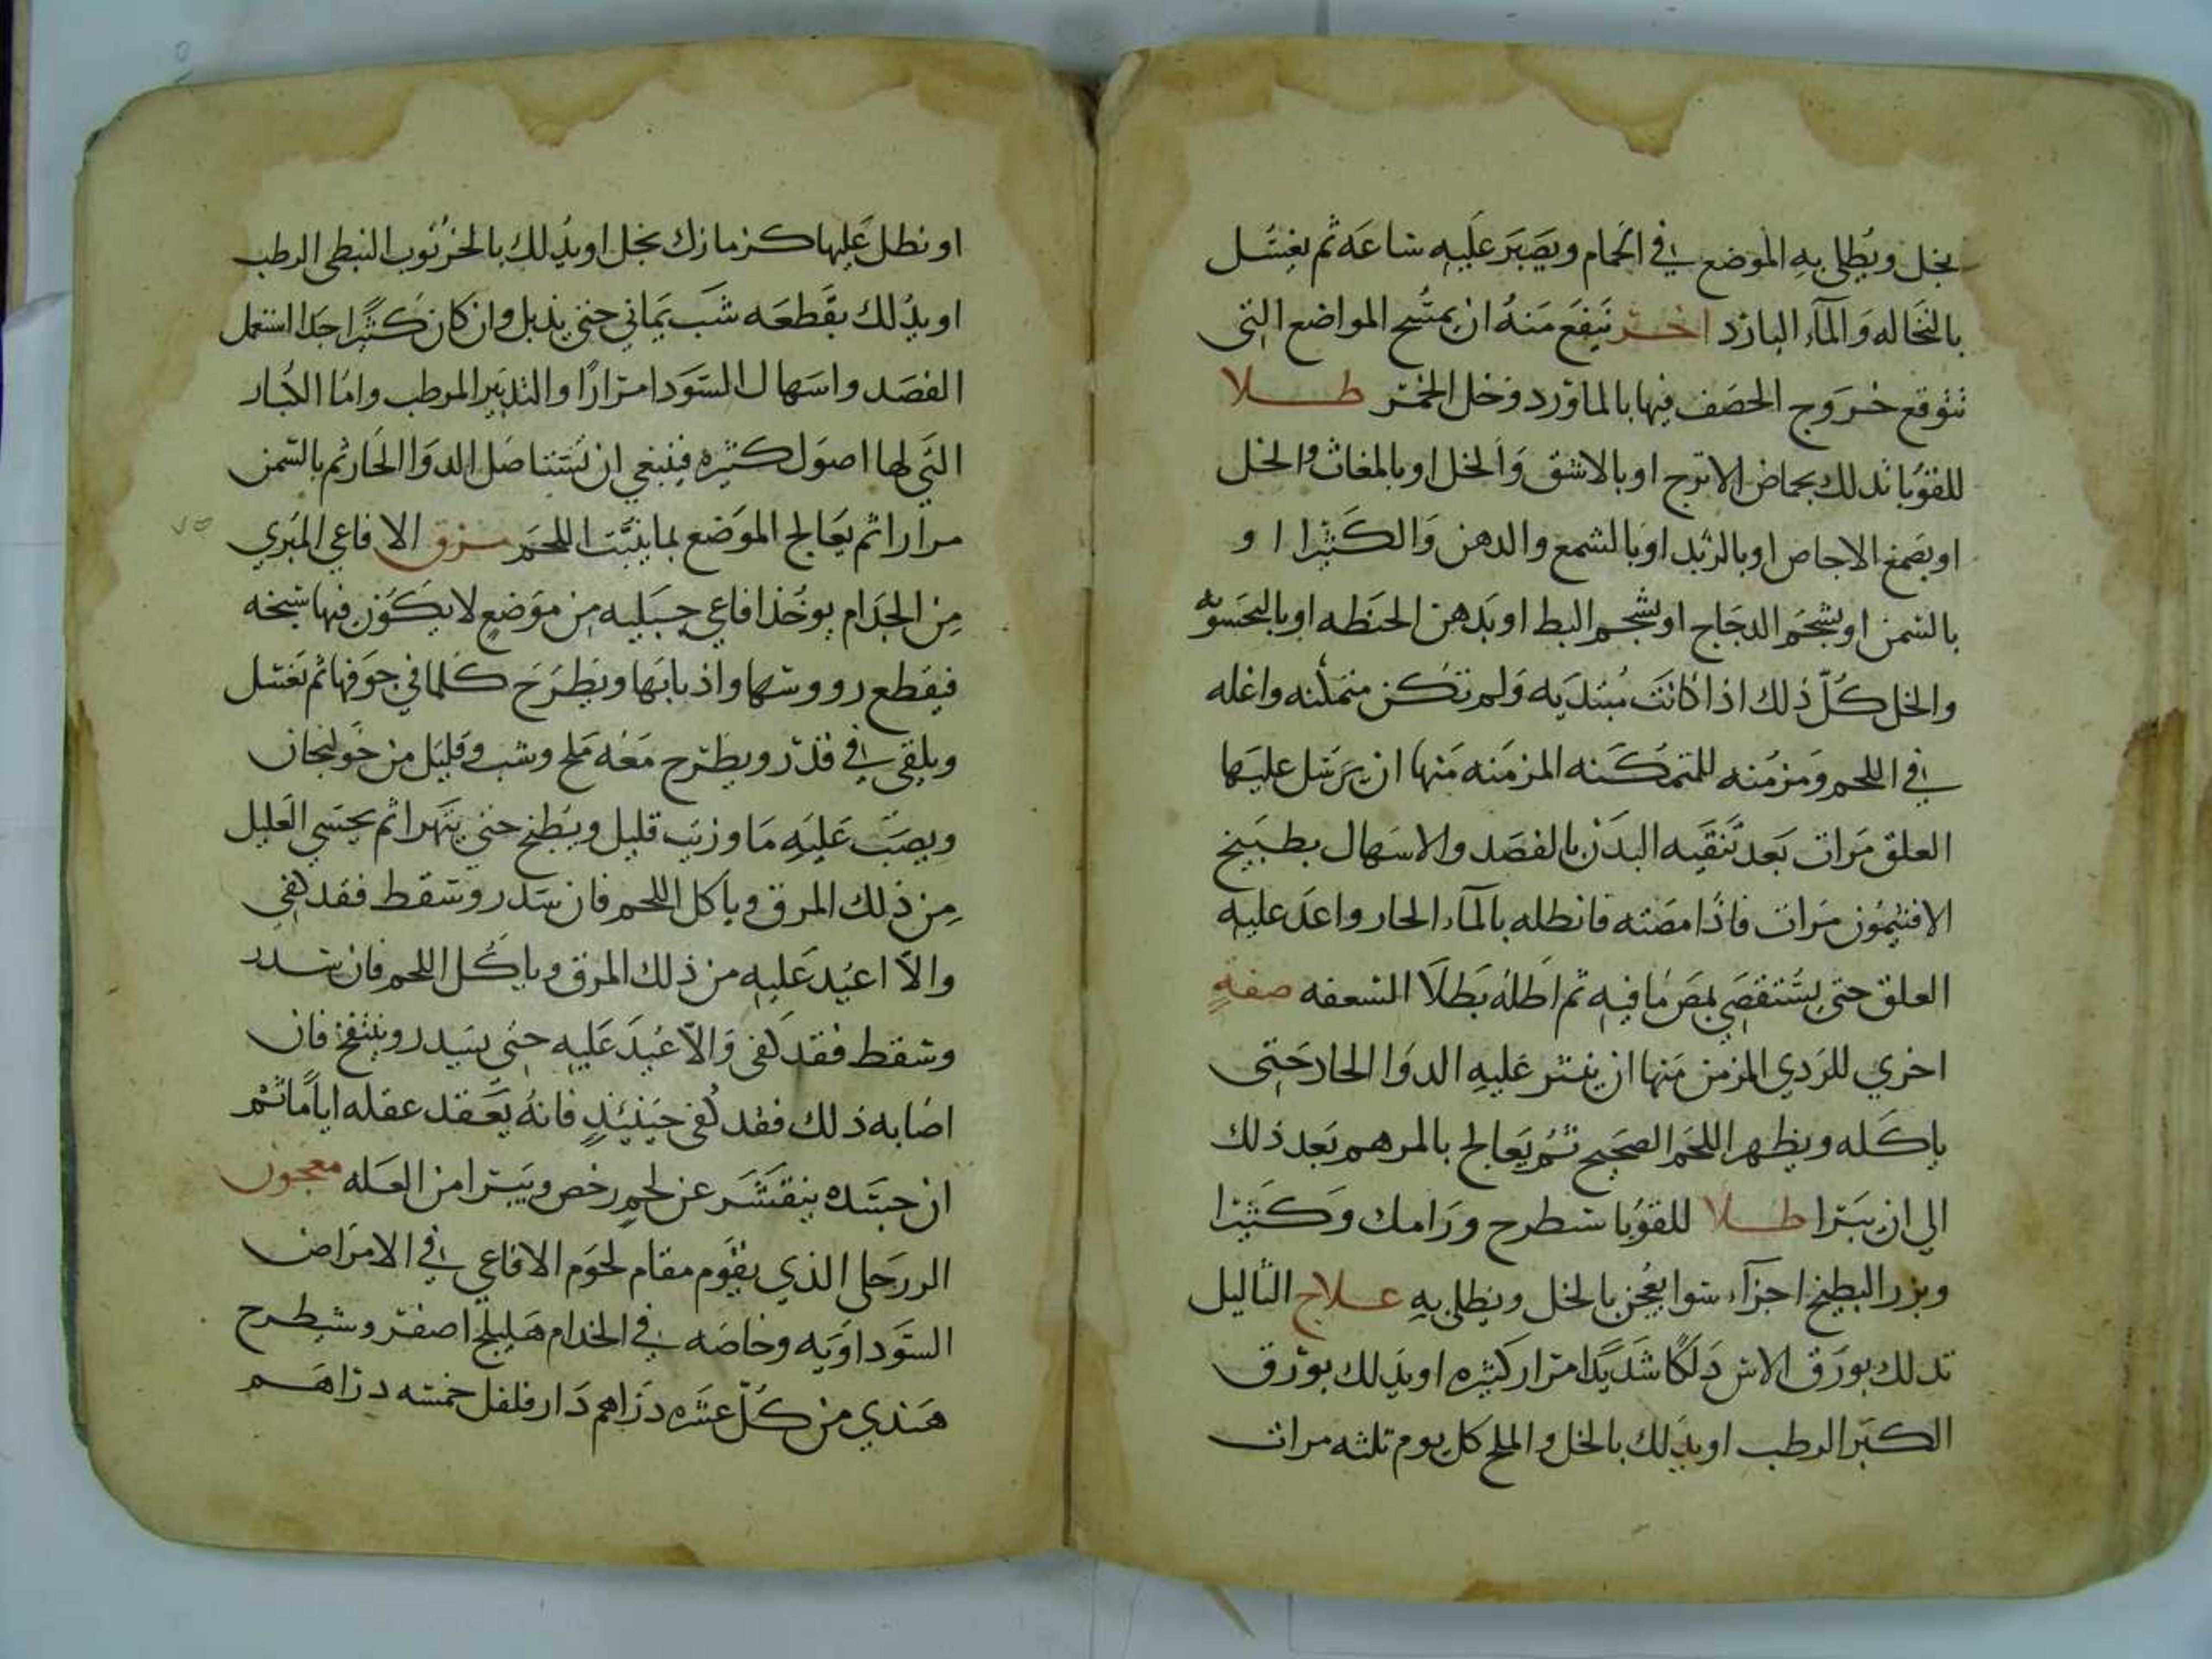 بخل ويُطلى به الموضع في الحمام ويصبر عليه ساعه ثم يغسل
بالنخاله والمآء البارد اخر ينفع منه ان يمسح المواضع التى
تتوقع خروج الحصف فيها بالماورد وخل الخمر طلا
للقوبا تدلك بحماض الاترج او بالاشق والخل او بالمغاث والخل
او بصمغ الاجاص او بالزبد او بالشمع والدهن والكثيرا او
بالسمن او بشحم الدجاج او بشحم البط او بدهن الحنطه او
والخل كل ذلك اذا كانت مبتديه ولم تكن متمكنه واغله
في اللحم ومزمنه للمتمكنه المزمنه منها ان يرسل عليها
العلق مرات بعد تنقيه البدن بالفصد والاسهال بطبيخ
الافتيمون مرات فاذا مصته فانطله بالمآء الحار واعد عليه
العلق حتى يستقصى بمص ما فيه ثم اطله بطلا السعفه صفة
اخري للردي المزمن منها ان ينثر عليه الدوا الحار حتى
ياكله ويظهر اللحم الصحيح ثم يعالج بالمرهم بعد ذلك
الي ان يبرا طلا للقوبا شطرح ورامك وكثيرا
وبزر البطيخ اجزآء سوا يعجن بالخل ويطلى به علاج الثاليل
تدلك بورق الاس دلكا شديدا مرار كثيره او يدلك بورق
الكبر الرطب او يدلك بالخل والملح كل يوم ثلثه مرات
او نطل عليها كزمازك بخل او يدلك بالخرنوب النبطى الرطب
او يدلك بقطعه شب يماني حتى يذبل وان كان كثيرا جدا استعمل
الفصد واسهال السودا مرارا والتدبير المرطب واما الكبار
التي لها اصول كثيره فينبغي ان الدوا الحار ثم بالسمن
مرارا ثم يعالج الموضع بما ينبت اللحم مرق الافاعي المبري
من الجذام يوخذ افاعي جبليه من موضع لا يكون فيها سبخه
فيقطع رووسها واذنابها ويطرح كلما في جوفها ثم تغسل
ويلقى في قدر ويطرح معه ملح وشب وقليل من خولنجان
ويصب عليه ما وزيت قليل ويطبخ حتى يتهرا ثم يحسي العليل
من ذلك المرق وياكل اللحم فان سدر وسقط فقد كفي
والا اعيد عليه من ذلك المرق وياكل اللحم فان سدر
وسقط فقد كفى والا عيد عليه حتى يسدر وينتفخ فان
اصابه ذلك فقد كفى حينيذ فانه يعقد عقله اياما ثم
ان جسده ينقشر عن لحم رخص ويبرا من العله معجون
الذي يقوم مقام لحوم الافاعي في الامراض
السوداويه وخاصه في الجذام هليلج اصفر وشيطرح
هندي من كل عشره دراهم دار فلفل خمسه دراهم